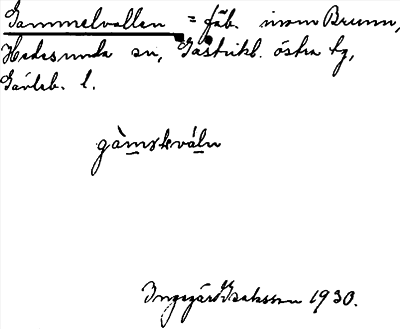 Gammelvallen = fäb. inom Brunn,
Hedesunda sn, Gästrikl. östra tg,
Gävleb. l.
gàmskváln
Ingegärd Isaksson 1930.